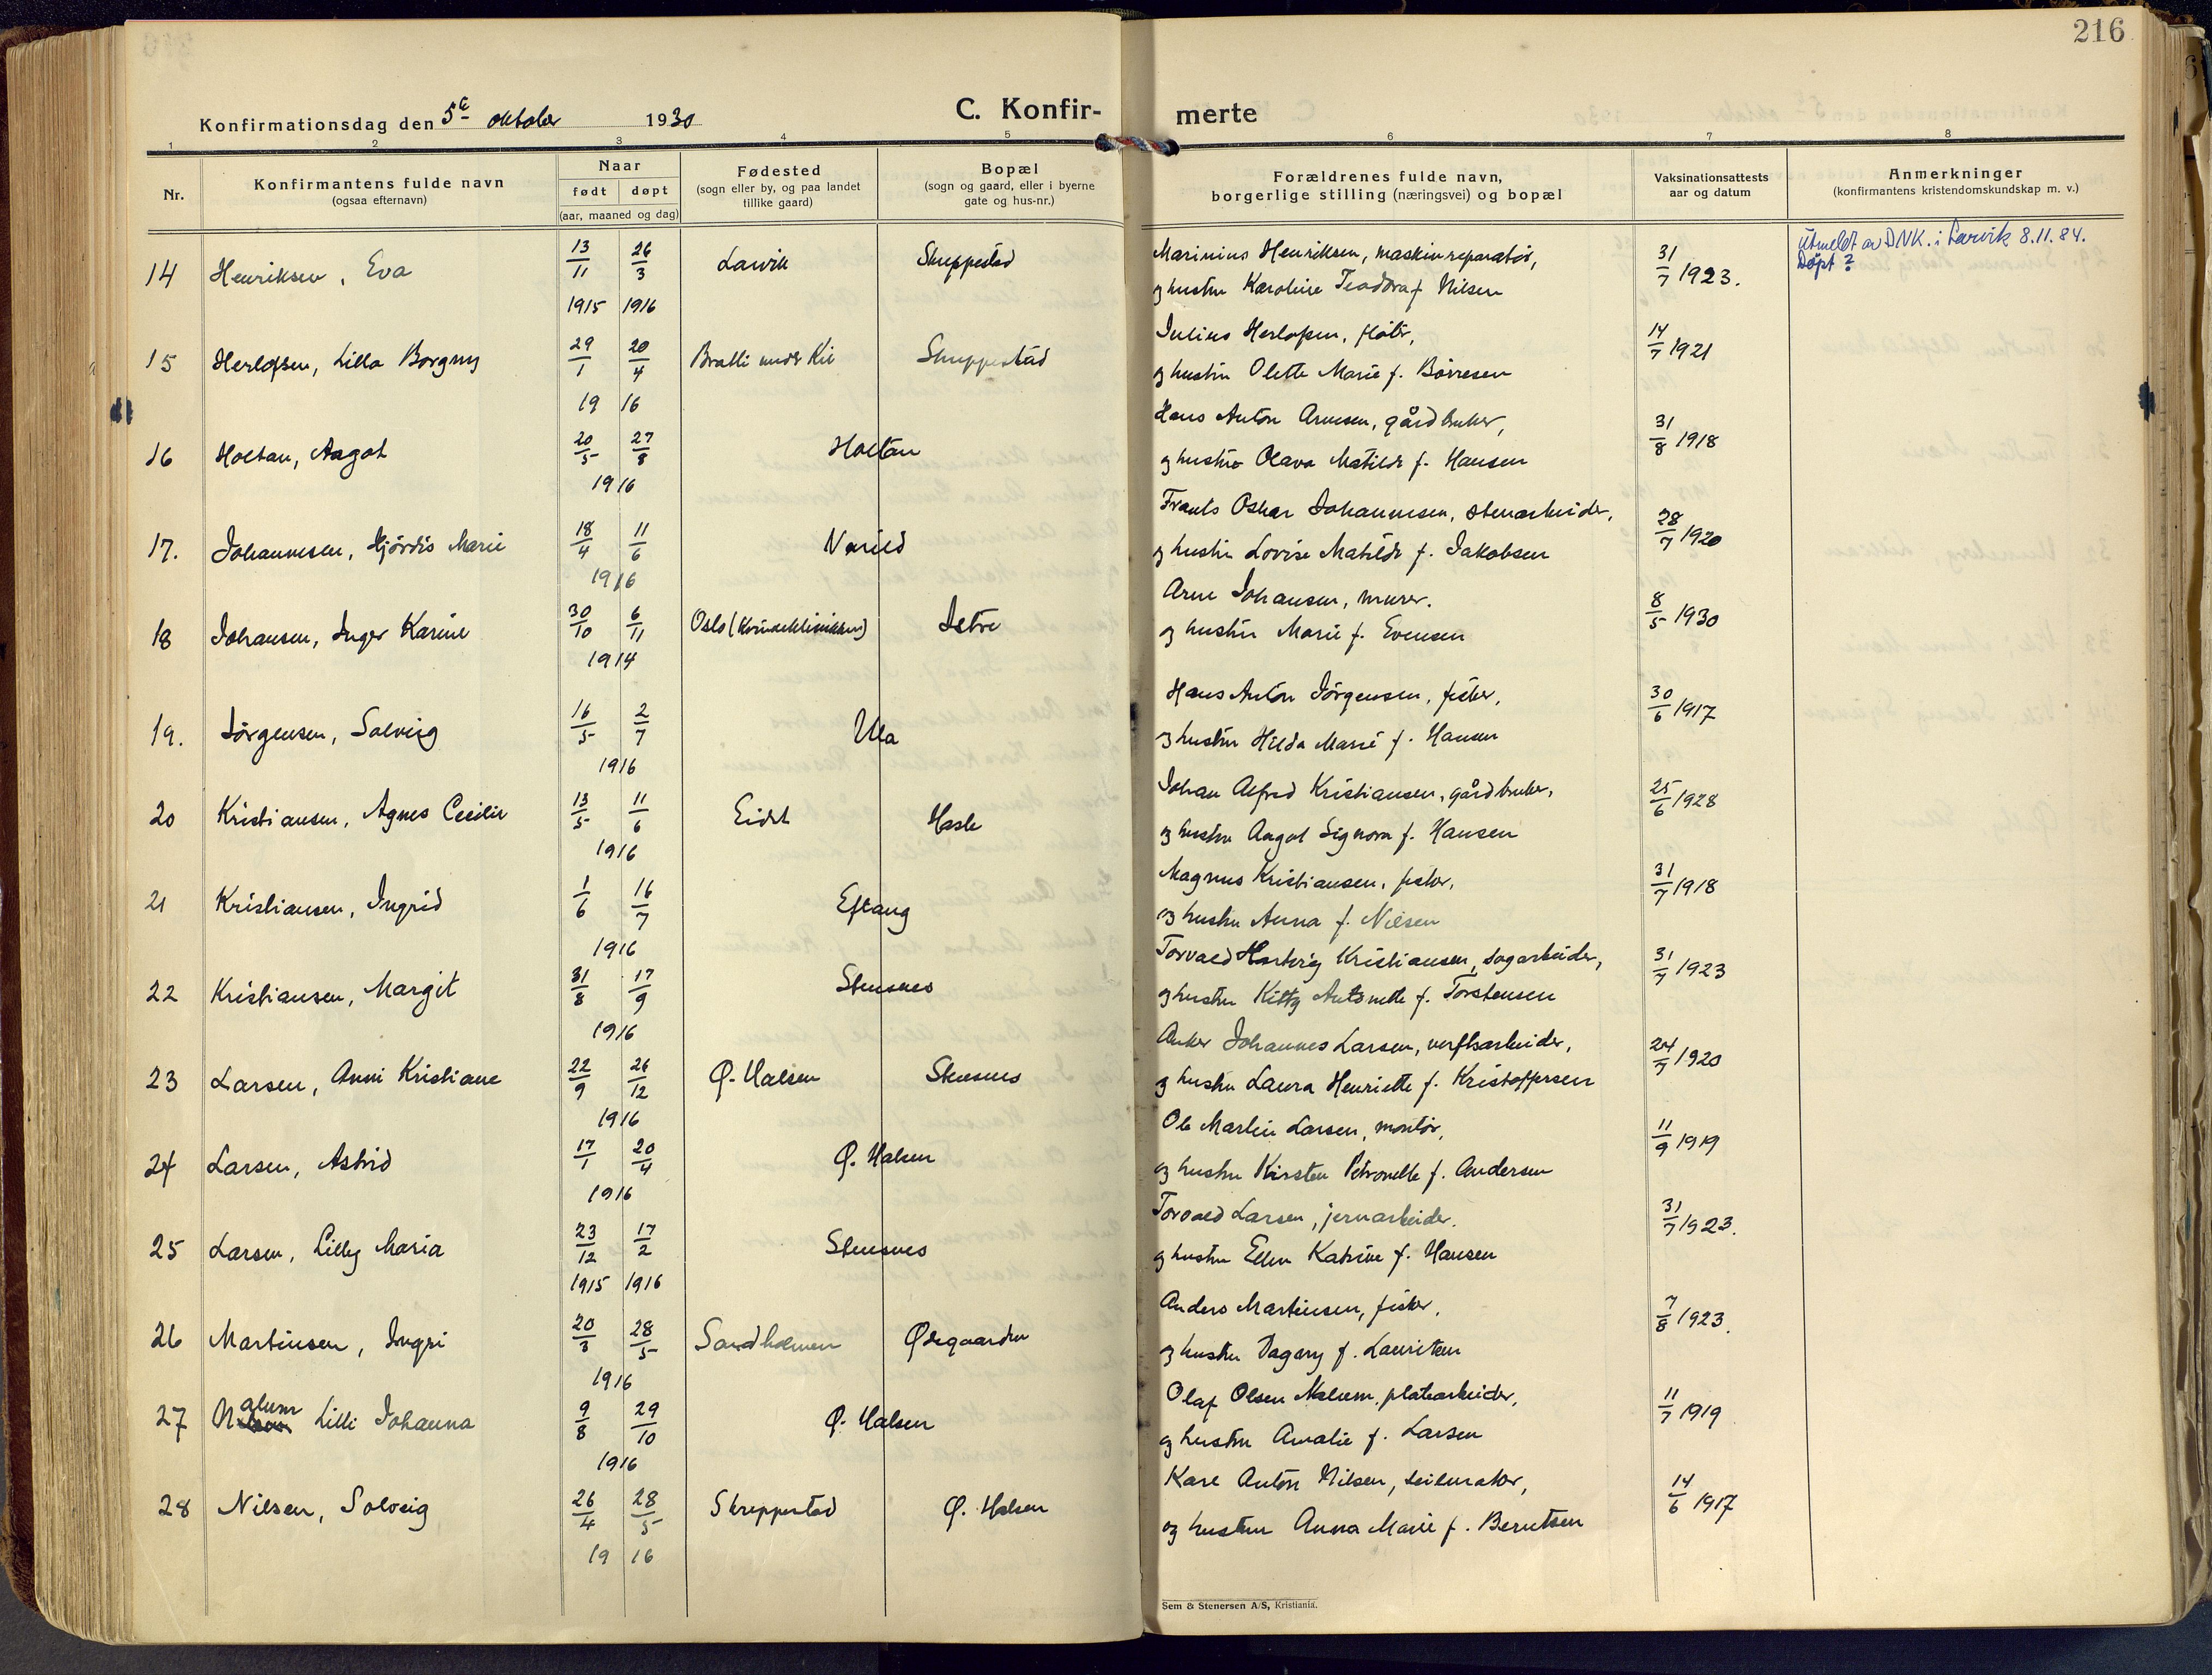 216
Konfirmationsdag den 5te oktober 1930
C. Konfir-
merte
1 2 3 4 5 6 7 8
Nr.
Konfirmantens fulde navn
(ogsaa efternavn)
Naar
født døpt
(aar, maaned og dag)
Fødested
(sogn eller by, og paa landet
tillike gaard)
Bopæl
(sogn og gaard, eller i byerne
gate og hus-nr.)
Forældrenes fulde navn,
borgerlige stilling (næringsvei) og bopæl
Vaksinationsattests
aar og datum
Anmerkninger
(konfirmantens kristendomskundskap m. v.)
14 Henriksen, Eva 13/11 1915 26/3 1916 Larvik Skreppestad
Marinius Henriksen, maskinreparatør,
og hustru Karoline Teodora f. Nilsen
31/7 1923.
Utmeldt av DNK. i Larvik 8.11.84.
Døpt?
15 Herlofsen, Lilla Borgny 29/1 20/4 1916 Bratli under Kil Skreppestad
Julius Herlofsen, fløter,
og hustru Olette Marie f. Børresen
14/7 1921
16 Holtan, Aagot 20/5 27/8 1916 Holtan
Hans Anton Arnesen, gårdbruker,
og hustru Olava Matilde f. Hansen
31/8 1918
17. Johannesen, Hjördis Marie 18/4 11/6 1916 Varild
Frants Oskar Johannesen, stenarbeider,
og hustru Lovise Matilde f. Jakobsen
28/7 1920
18 Johansen, Inger Karine 30/10 6/11 1914 Oslo (Kvindeklinikken) Istre
Arne Johansen, murer.
og hustru Marie f. Evensen
8/5 1930
19. Jørgensen, Solveig 16/5 2/7 1916 Ula
Hans Anton Jörgensen, fisker,
og hustru Hilda Marie f. Hansen
30/6 1917
20 Kristiansen, Agnes Cecilie 13/5 11/6 1916 Eidet Hasle
Johan Alfred Kristiansen, gårdbruker,
og hustru Aagot Signora f. Hansen
25/6 1928
21 Kristiansen, Ingrid 1/6 16/7 1916 Eftang
Magnus Kristiansen, fisker,
og hustru Anna f. Nilsen
31/7 1918
22 Kristiansen, Margit 31/8 17/9 1916 Stensnes
Torvald Hartvig Kristiansen, sagarbeider,
og hustru Kitty Antonette f. Torstensen
31/7 1923
23 Larsen, Anni Kristiane 22/9 26/12 1916 Ø. Halsen Stensnes
Anker Johannes Larsen, verftsarbeider,
og hustru Laura Henriette f. Kristoffersen
24/7 1920
24 Larsen, Astrid 17/1 20/4 1916 Ø. Halsen
Ole Martin Larsen, montør,
og hustru Kirsten Petronelle f. Andersen
11/9 1919
25 Larsen, Lilly Maria 23/12 1915 17/2 1916 Stensnes
Torvald Larsen, jernarbeider.
og hustru Ellen Katrine f. Hansen
31/7 1923.
26 Martinsen, Ingri 20/3 28/5 1916 Sandholmen Ødegaarden
Anders Martinsen, fisker,
og hustru Dagny f. Lauritsen
7/8 1923.
27 Nalum Lilli Johanna 9/8 29/10 1916 Ø. Halsen
Olaf Olsen Nalum, platearbeider,
og hustru Amalie f. Larsen
11/7 1919
28 Nilsen, Solveig 26/4 28/5 1916 Skreppestad Ø. Halsen
Karl Anton Nilsen, seilmaker,
og hustru Anna Marie f. Berntsen
14/6 1917
Sem & Stenersen A/S, Kristiania.